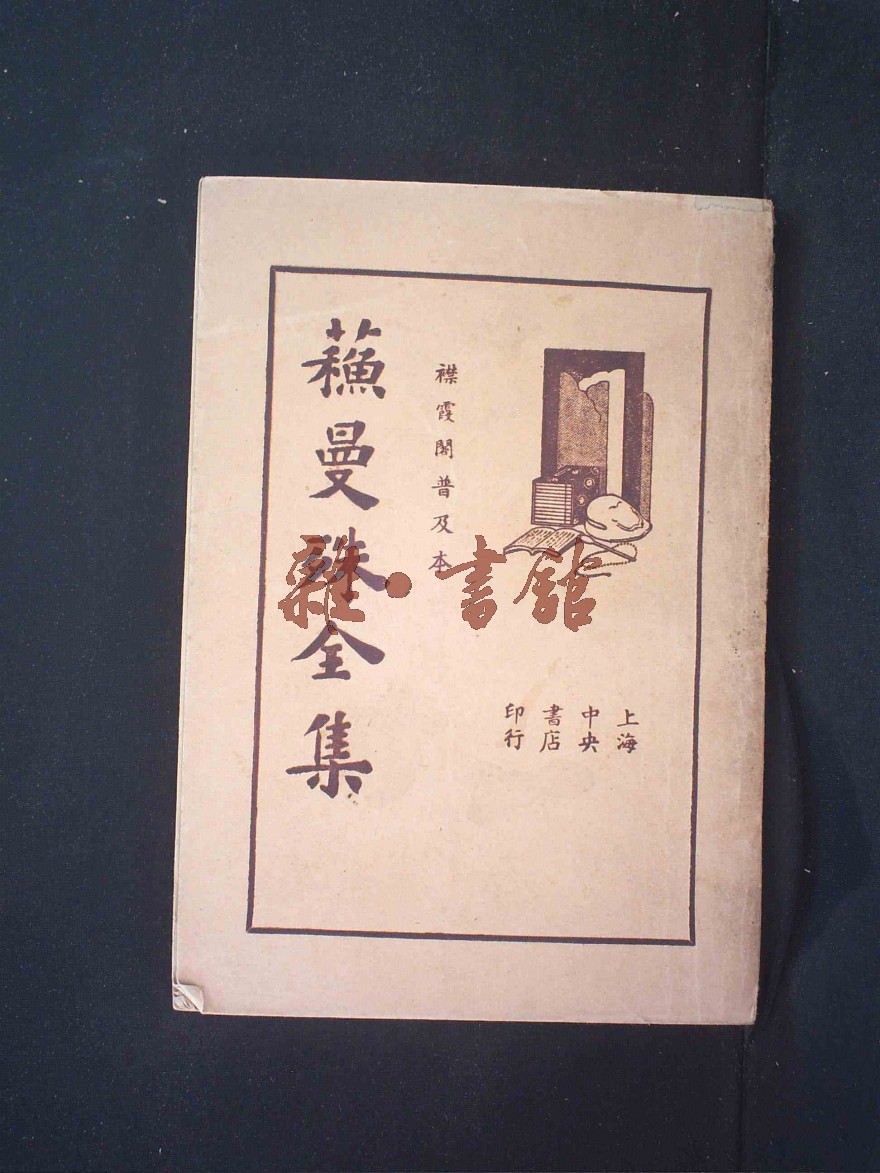 蘓曼殊全集
襟霞閣普及本
上海
中央
書店
印行
雜·書館